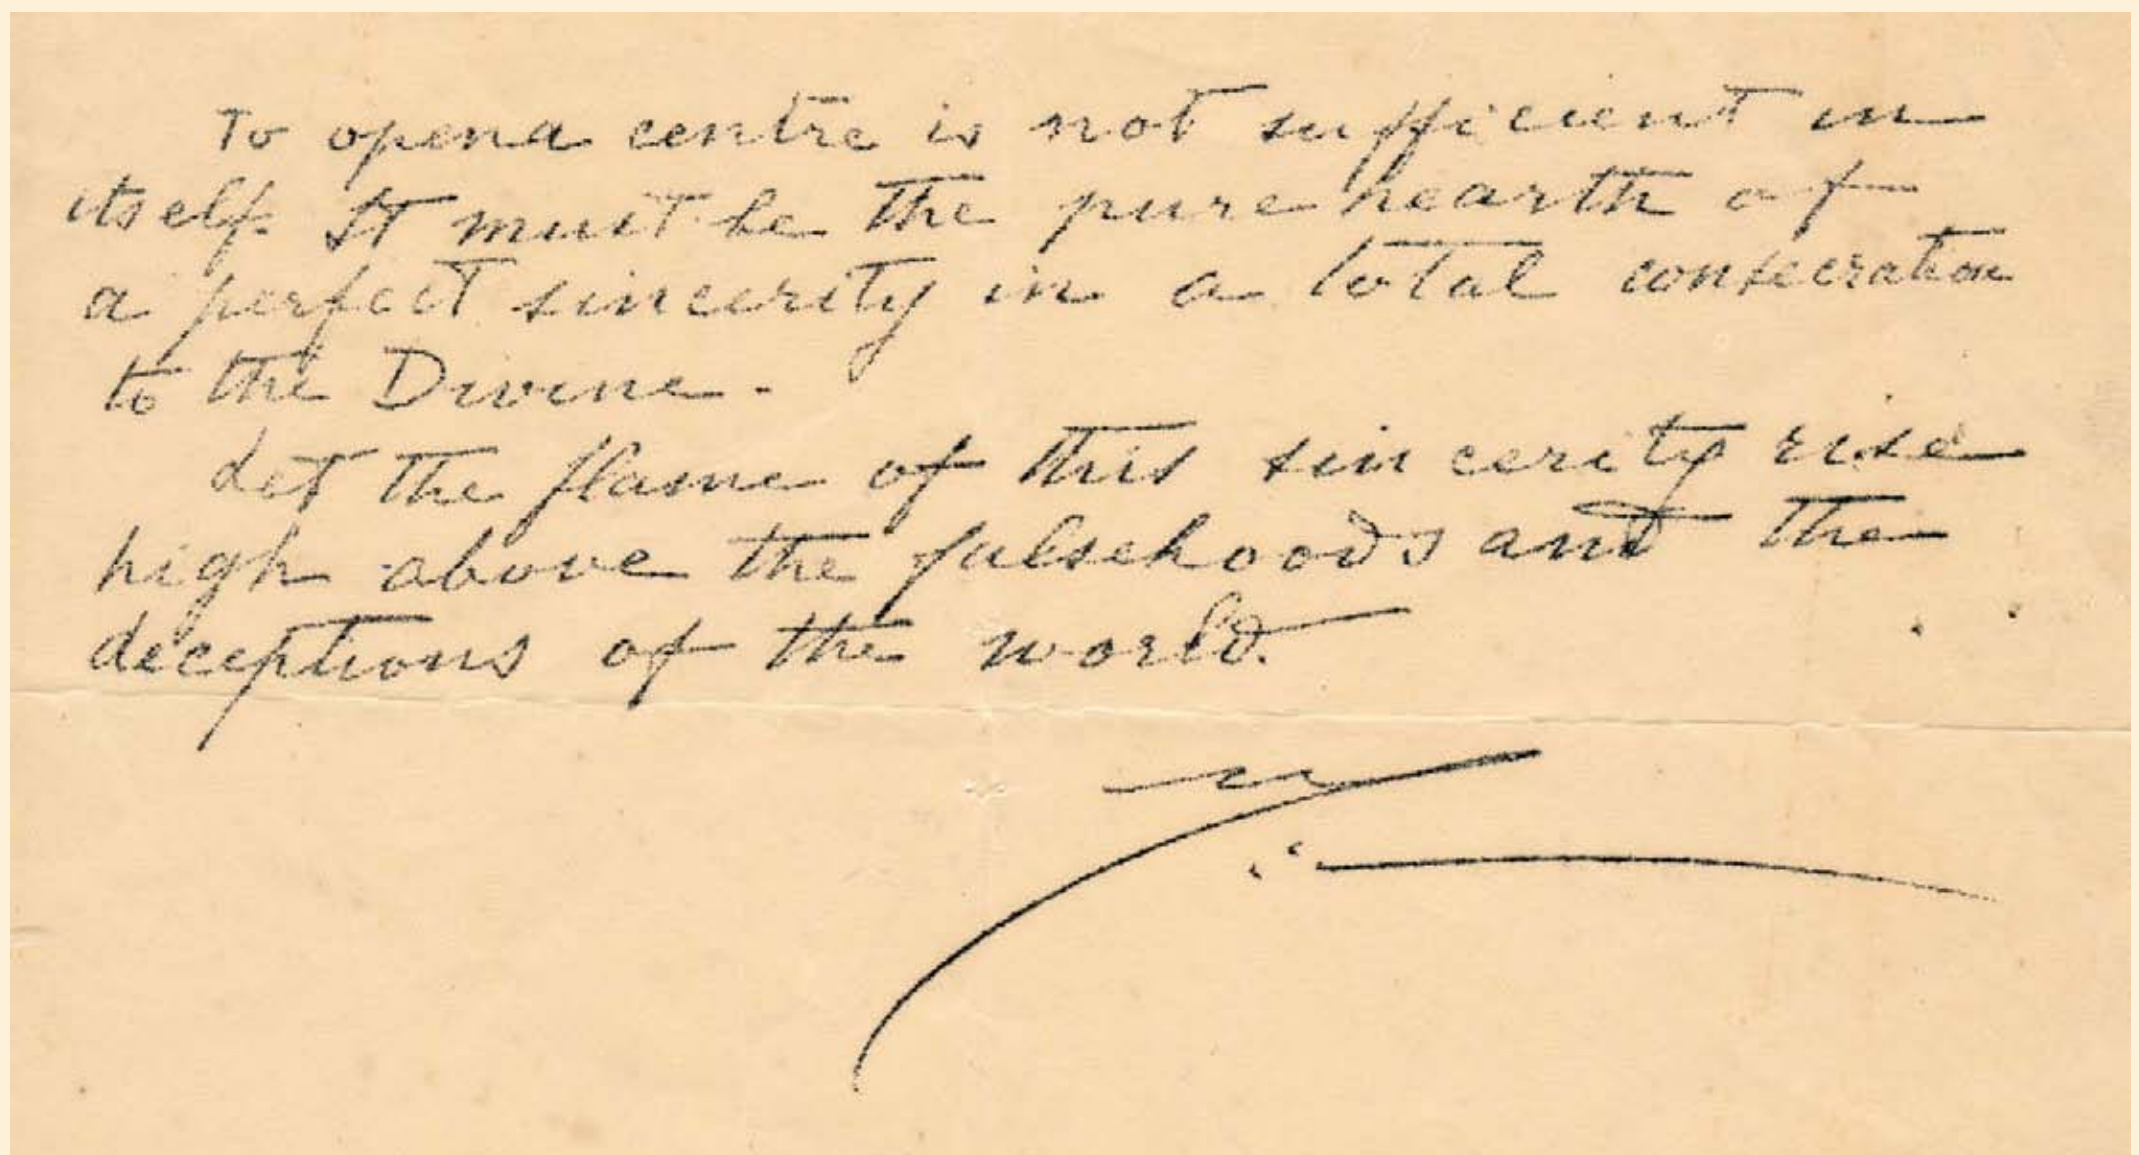 To open a centre is not sufficient in
itself. It must be the pure hearth of
a perfect sincerity in a total consecration
to the Divine.
Let the flame of this sincerity rise
high above the falsehoods and the
deceptions of the world.